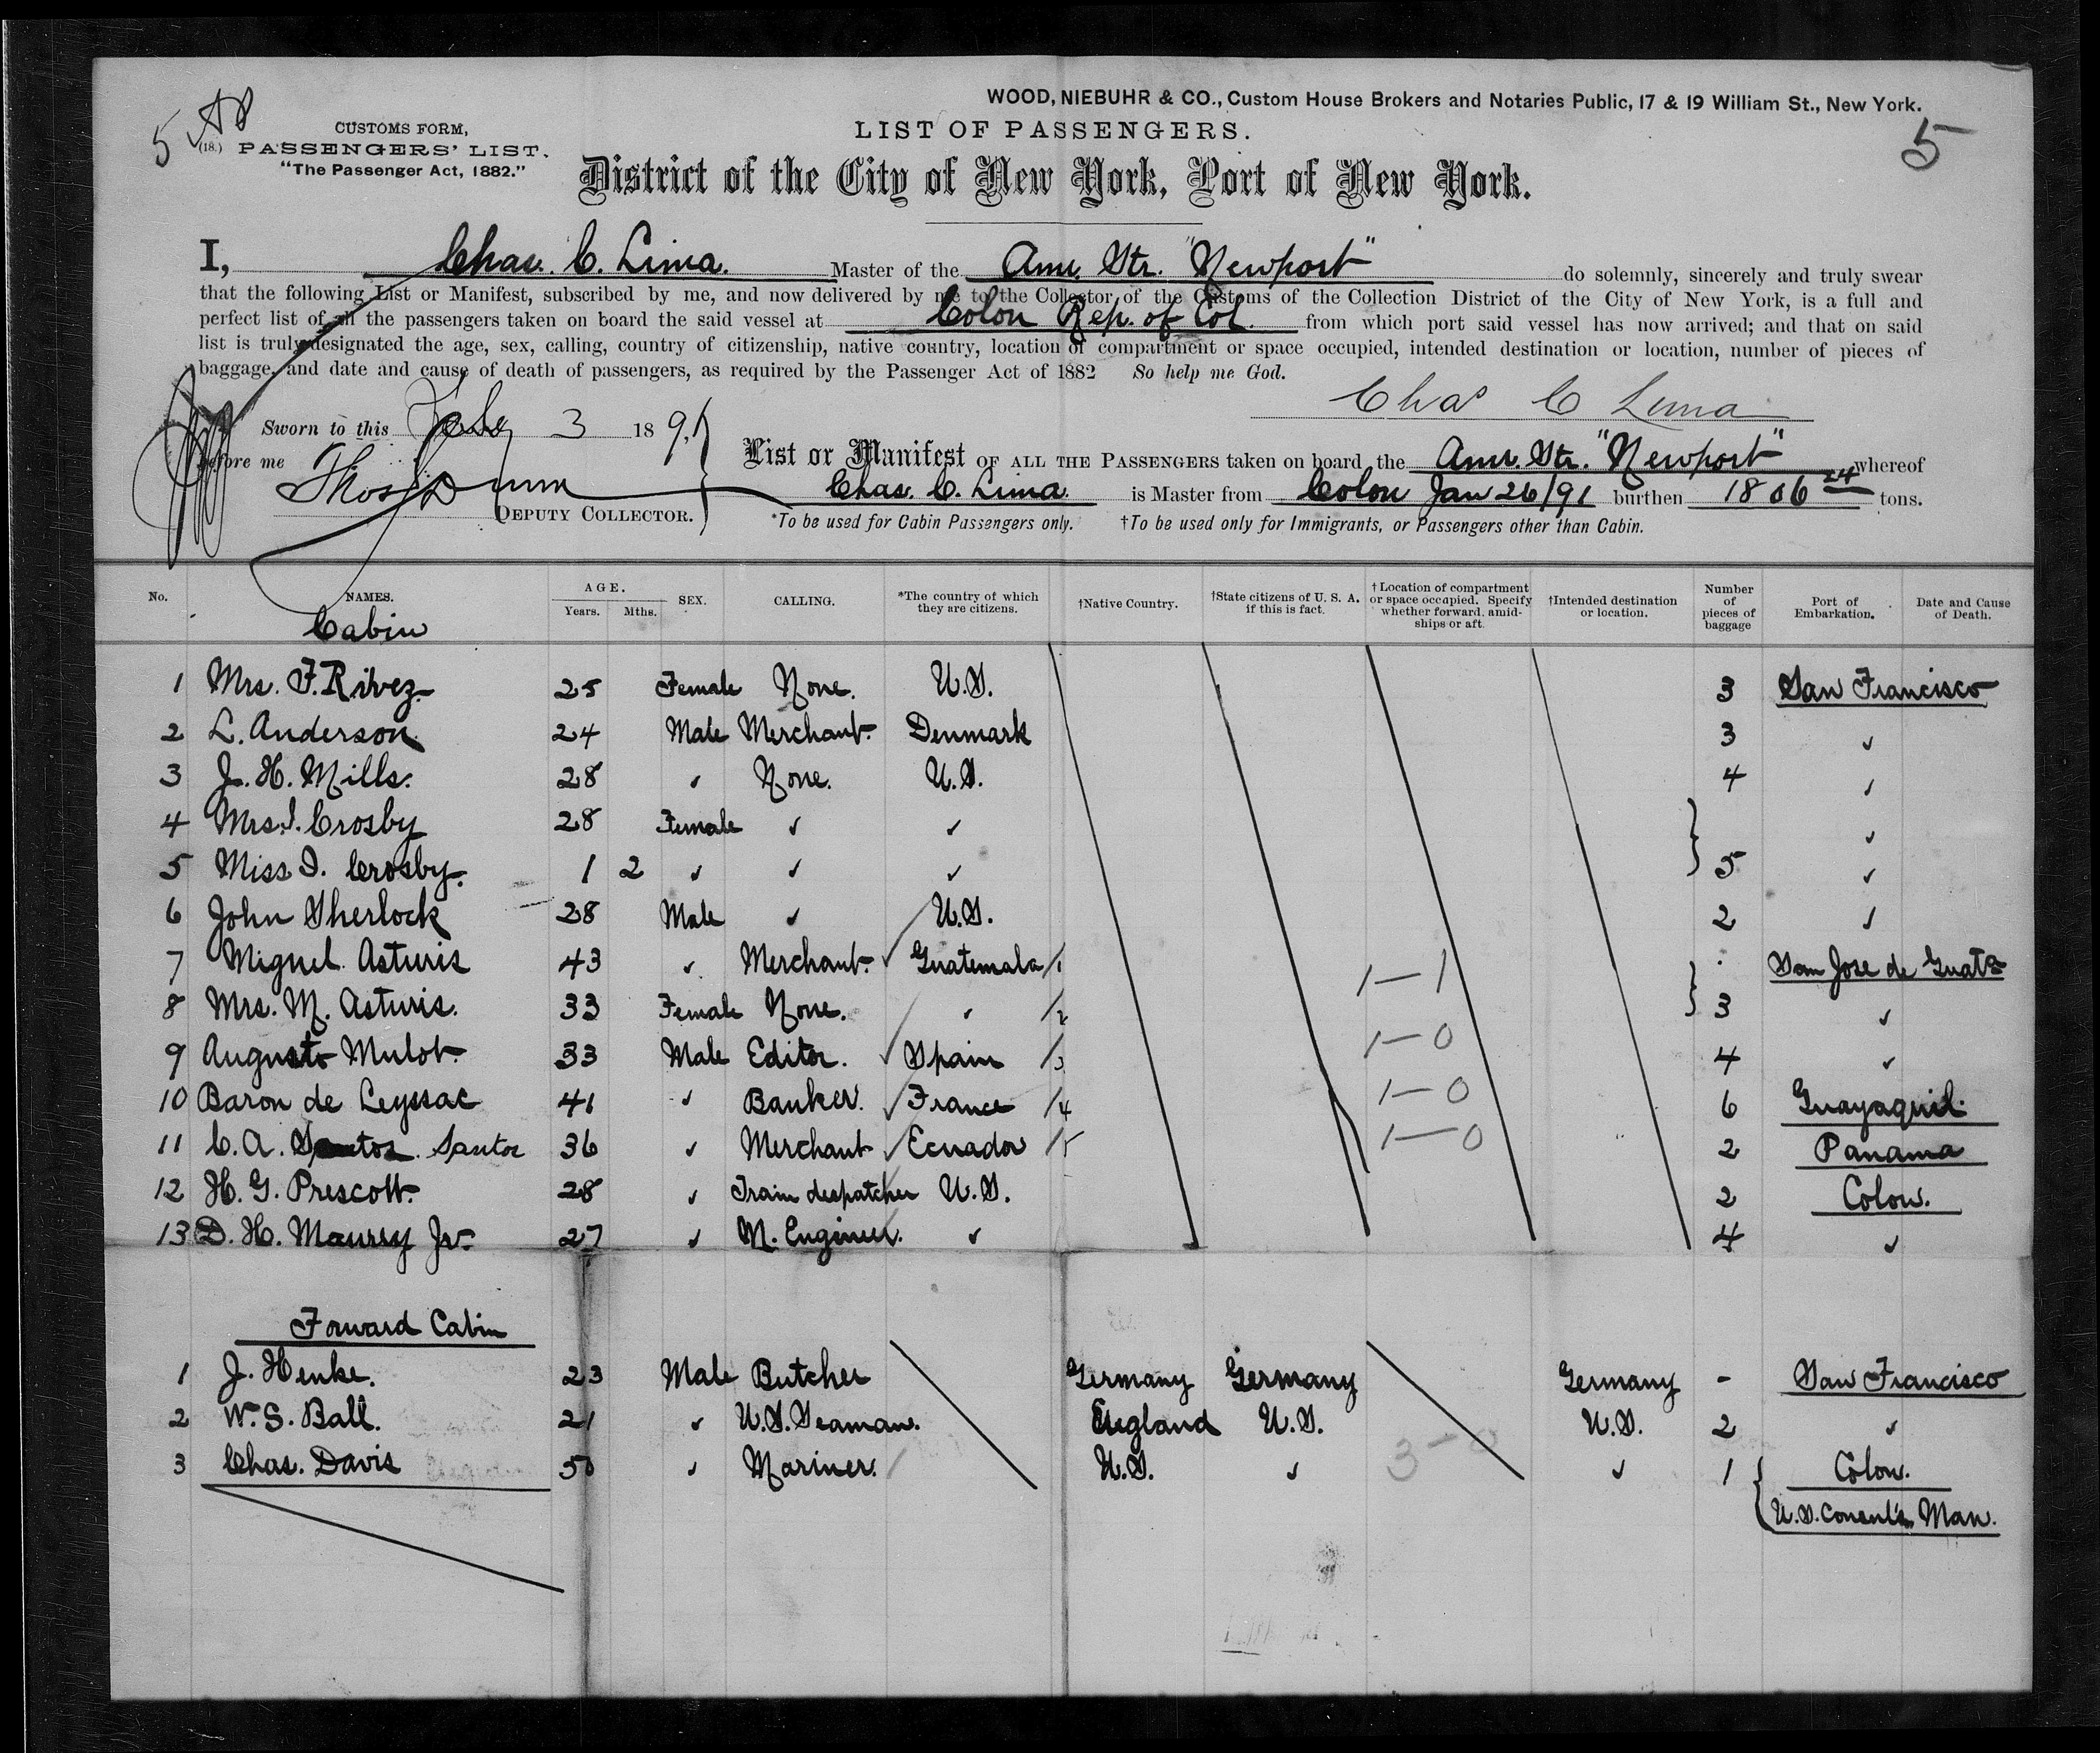 WOOD, NIEBUHR & CO., Custom House Brokers and Notaries Public, 17 & 19 William St., New York.
5
5
CUSTOMS FORM,
(18.) PASSENGERS' LIST.
"The Passenger Act, 1882."
LIST OF PASSENGERS.
District of the City of New York, Port of New York.
I, Chas. C. Lima. Master of the Amr. Str. "Newport" do solemnly, sincerely and truly swear
that the following List or Manifest, subscribed by me, and now delivered by me to the Collector of the Customs of the Collection District of the City of New York, is a full and
perfect list of all the passengers taken on board the said vessel at Colon Rep. of Col. from which port said vessel has now arrived; and that on said
list is truly designated the age, sex, calling, country of citizenship, native country, location of compartment or space occupied, intended destination or location, number of pieces of
baggage, and date and cause of death of passengers, as required by the Passenger Act of 1882 So help me God.
Chas C Lima
Sworn to this Feby 3 1891
before me
DEPUTY COLLECTOR.
List or Manifest OF ALL THE PASSENGERS taken on board the Amr. Str. "Newport" whereof
Chas. C. Lima. is Master from Colon Jan 26/91 burthen 1806 24 tons.
*To be used for Cabin Passengers only. †To be used only for Immigrants, or Passengers other than Cabin.
No. NAMES. AGE. Years. Mths. SEX. CALLING. *The country of which they are citizens. †Native Country. †State citizens of U. S. A. if this is fact. †Location of compartment or space occupied. Specify whether forward, amidships or aft. †Intended destination or location. Number of pieces of baggage Port of Embarkation. Date and Cause of Death.
Cabin
1 Mrs. F. Rivez. 25 Female None. U.S. 3 San Francisco
2 L. Anderson 24 Male Merchant. Denmark 3 ✓
3 J. H. Mills. 28 ✓ None. U.S. 4 ✓
4 Mrs. I. Crosby 28 Female ✓ ✓ ✓
5 Miss I. Crosby. 1 2 ✓ ✓ ✓ 5 ✓
6 John Sherlock 28 Male ✓ U.S. 2 ✓
7 Miguel Asturis 43 ✓ Merchant. Guatemala /1 1—1 San Jose de Guata
8 Mrs. M. Asturis. 33 Female None. ✓ /2 3 ✓
9 Augusto Mulot. 33 Male Editor. Spain /3 1—0 4 ✓
10 Baron de Leyssac 41 ✓ Banker. France /4 1—0 6 Guayaquil.
11 C. A. Santos. Santos 36 ✓ Merchant Ecuador /5 1—0 2 Panama
12 H. G. Prescott. 28 ✓ Train despatcher U.S. 2 Colon.
13 D. H. Maurey Jr. 27 ✓ M. Engineer. ✓ 4 ✓
Forward Cabin
1 J. Henke. 23 Male Butcher Germany Germany Germany - San Francisco
2 W. S. Ball. 21 ✓ U.S. Seaman. England U.S. U.S. 2 ✓
3 Chas. Davis 50 ✓ Mariner. U.S. ✓ 3—0 ✓ 1 Colon.
U.S. Consul's Man.